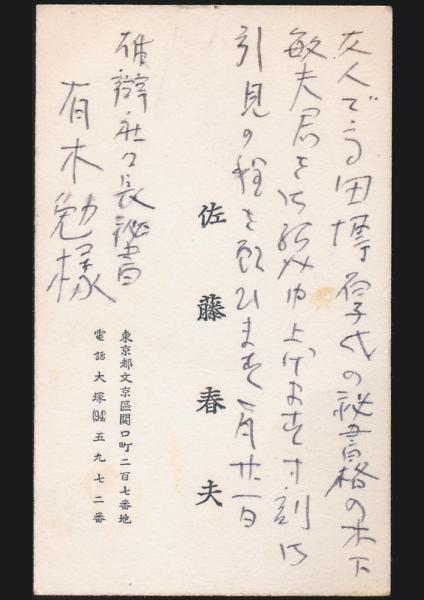 友人で高田博厚氏の秘書格の木下
敏夫君を御紹介申上げます寸刻御
引見の程を願ひます 一月廿一日
佐藤春夫
社々長秘書
有木勉様
東京都文京區関口町二百七番地
電話大塚(94)五九七二番